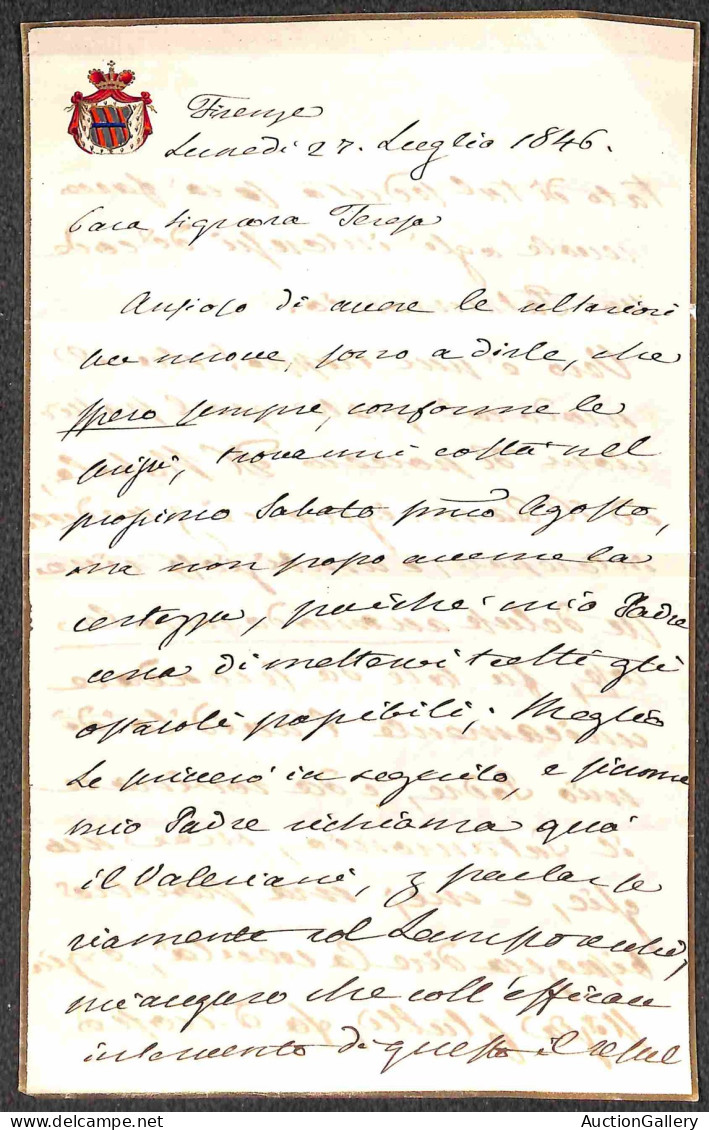 Firenze
Lunedì 27. Luglio 1846.
Cara Signora Teresa
Ansioso di avere le ulteriori
sue nuove, sono a dirle, che
spero sempre, conforme le
dissi, trovarmi costà nel
prossimo Sabato pmo Agosto,
ma non posso averne la
certezza, poiché mio Padre
cerca di mettervi tutti gli
ostacoli possibili; Meglio
Le in seguito, e siccome
mio Padre richiama quà
il Valeriani, p parlar se
riamente col
mi auguro che coll'efficace
intervento di questo il resul
Delcampe.net
AuctionGallery